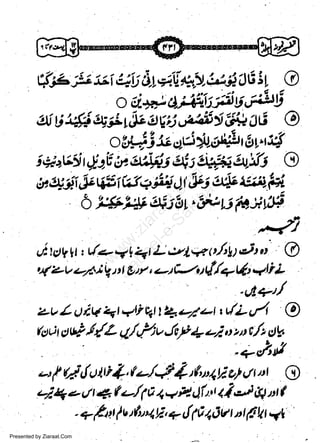 تفسیر نمونه جلد
۴۳۱
یوسف ۴ تا ۶
۴ اِذْ قَالَ يُوْسُفُ لِاَبِيْهِ يٰٓاَبَتِ اِنِّىْ رَاَيْتُ اَحَدَ عَشَرَ كَوْكَبًا
وَّالشَّمْسَ وَالْقَمَرَ رَاَيْتُهُمْ لِىْ سٰجِدِيْنَ ○
۵ قَالَ يٰبُنَىَّ لَا تَقْصُصْ رُءْيَاكَ عَلٰٓى اِخْوَتِكَ فَيَكِيْدُوْا لَكَ
كَيْدًا اِنَّ الشَّيْطٰنَ لِلْاِنْسَانِ عَدُوٌّ مُّبِيْنٌ ○
۶ وَكَذٰلِكَ يَجْتَبِيْكَ رَبُّكَ وَيُعَلِّمُكَ مِنْ تَاْوِيْلِ الْاَحَادِيْثِ وَ
يُتِمُّ نِعْمَتَهٗ عَلَيْكَ وَعَلٰٓى اٰلِ يَعْقُوْبَ كَمَآ اَتَمَّهَا عَلٰٓى اَبَوَيْكَ مِنْ
قَبْلُ اِبْرٰهِيْمَ وَاِسْحٰقَ اِنَّ رَبَّكَ عَلِيْمٌ حَكِيْمٌ ○
ترجمہ
۴ وہ وقت (یاد کرو) جب یوسف نے اپنے باپ سے کہا: ابا جان! میں
نے خواب میں دیکھا ہے کہ گیارہ ستارے، سورج اور چاند میرے سامنے سجدہ
کر رہے ہیں۔
۵ اس نے کہا: اے میرے بیٹے! اپنا خواب اپنے بھائیوں کے سامنے
بیان نہ کرنا ورنہ وہ تیرے لیے خطرناک سازش کریں گے کیونکہ شیطان انسان کا
کھلا دشمن ہے۔
۶ اور اس طرح تیرا پروردگار تجھے منتخب کرے گا، تجھے خوابوں کی تعبیر کا علم دے
گا اور اپنی نعمت تجھ پر اور آل یعقوب پر تمام کرے گا جیسے اس سے پہلے تیرے
باپ ابراہیم اور اسحاق پر تمام کی ہے، تیرا پروردگار عالم اور حکیم ہے۔
Presented by Ziaraat.Com